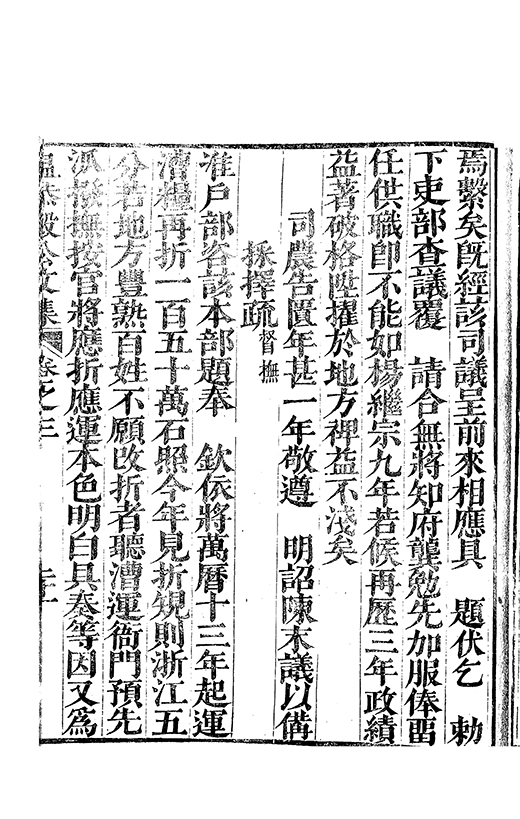 焉繫矣既經該司議呈前來相應具　題伏乞　勅
下吏部查議覆　請合無將知府龔勉先加服俸畱
任供職卽不能如楊繼宗九年若候再歷三年政績
益著破格陞擢於地方裨益不淺矣
司農告匱年甚一年敬遵　明詔陳末議以備
採擇疏督撫
准戶部咨該本部題奉　欽依將萬曆十三年起運
漕糧再折一百五十萬石照今年見折規則浙江五
分若地方豐熟百姓不願改折者聽漕運衙門預先
派撥撫按官將應折應運本色明白具奏等因又爲
溫恭毅公文集　卷之三